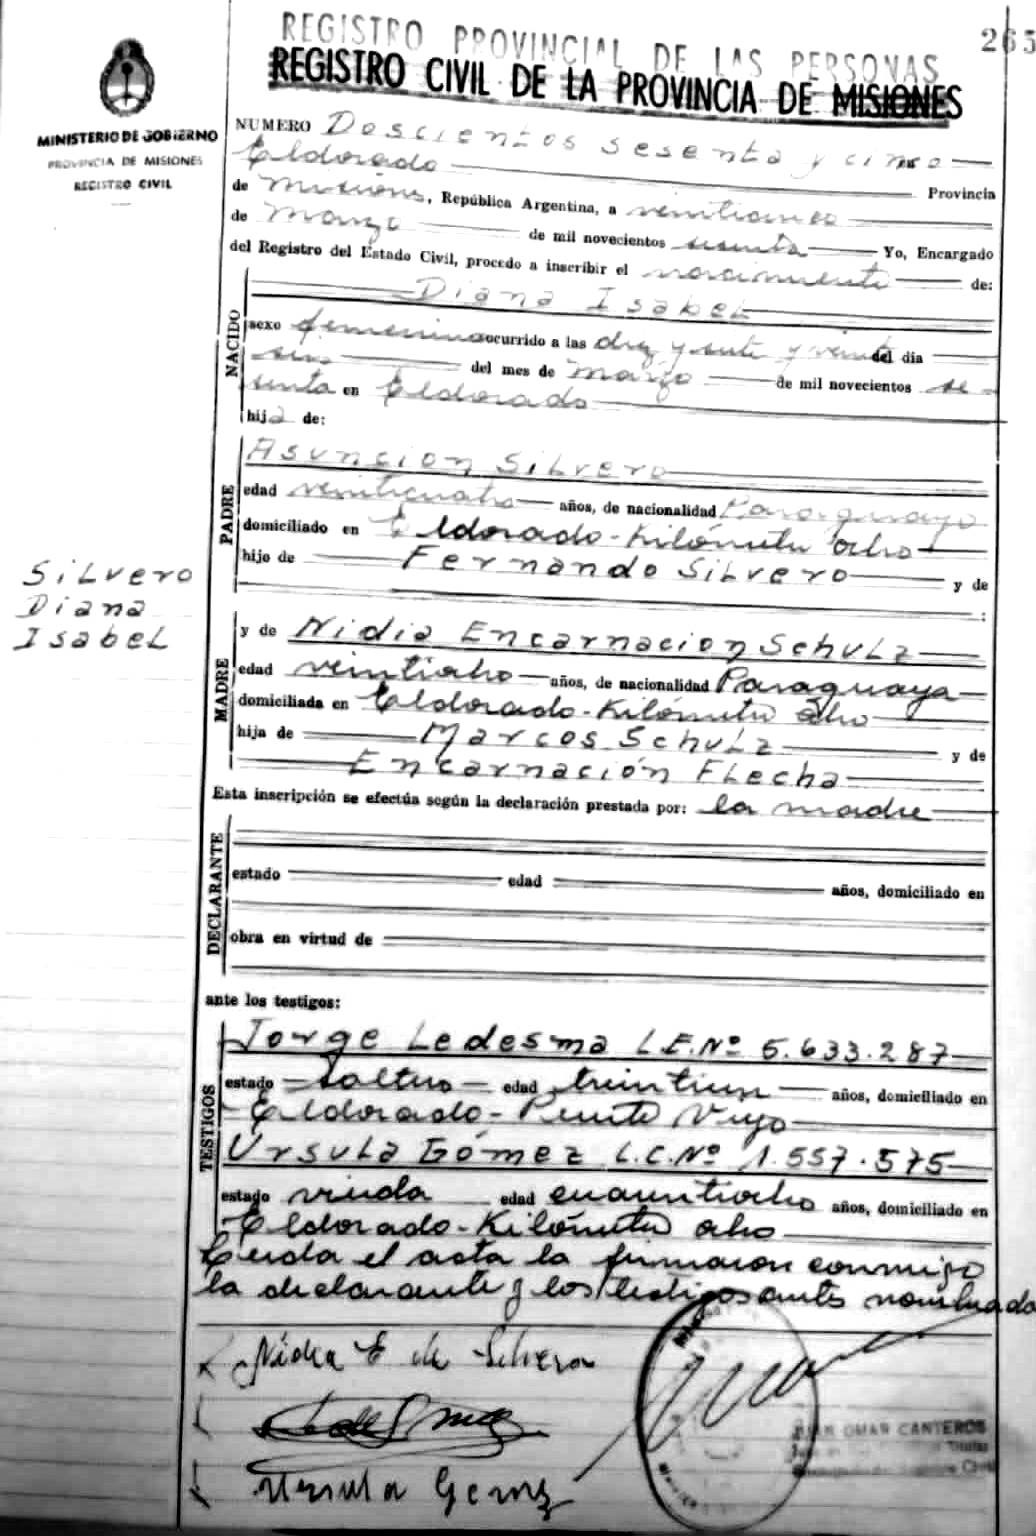 REGISTRO PROVINCIAL DE LAS PERSONAS
265
REGISTRO CIVIL DE LA PROVINCIA DE MISIONES
MINISTERIO DE GOBIERNO
PROVINCIA DE MISIONES
REGISTRO CIVIL
NUMERO Doscientos sesenta y cinco
Eldorado Provincia
de Misiones, República Argentina, a veinticinco
de marzo de mil novecientos sesenta Yo, Encargado
del Registro del Estado Civil, procedo a inscribir el nacimiento de:
NACIDO
Diana Isabel
sexo femenino ocurrido a las diez y siete y veinte del día
seis del mes de marzo de mil novecientos se-
senta en Eldorado
hija de:
PADRE
Asuncion Silvero
edad veinticuatro años, de nacionalidad Paraguayo
domiciliado en Eldorado-Kilómetro ocho
hijo de Fernando Silvero y de
:
Silvero
Diana
Isabel
MADRE
y de Nidia Encarnacion Schulz
edad veintiocho años, de nacionalidad Paraguaya
domiciliada en Eldorado-Kilómetro ocho
hija de Marcos Schulz y de
Encarnación Flecha
Esta inscripción se efectúa según la declaración prestada por: la madre
DECLARANTE
estado edad años, domiciliado en
obra en virtud de
ante los testigos:
TESTIGOS
Jorge Ledesma L.E.Nº 5.633.287
estado soltero edad años, domiciliado en
Eldorado-Puente Viejo
Ursula Gómez L.C.Nº 1.557.575
estado viuda edad cuarentiocho años, domiciliado en
Eldorado-Kilómetro ocho
Leida el acta la firmaron conmigo
la declarante y los testigos antes nombrados
Nidia E de Silvero
Ursula Gomez
JUAN OMAR CANTEROS